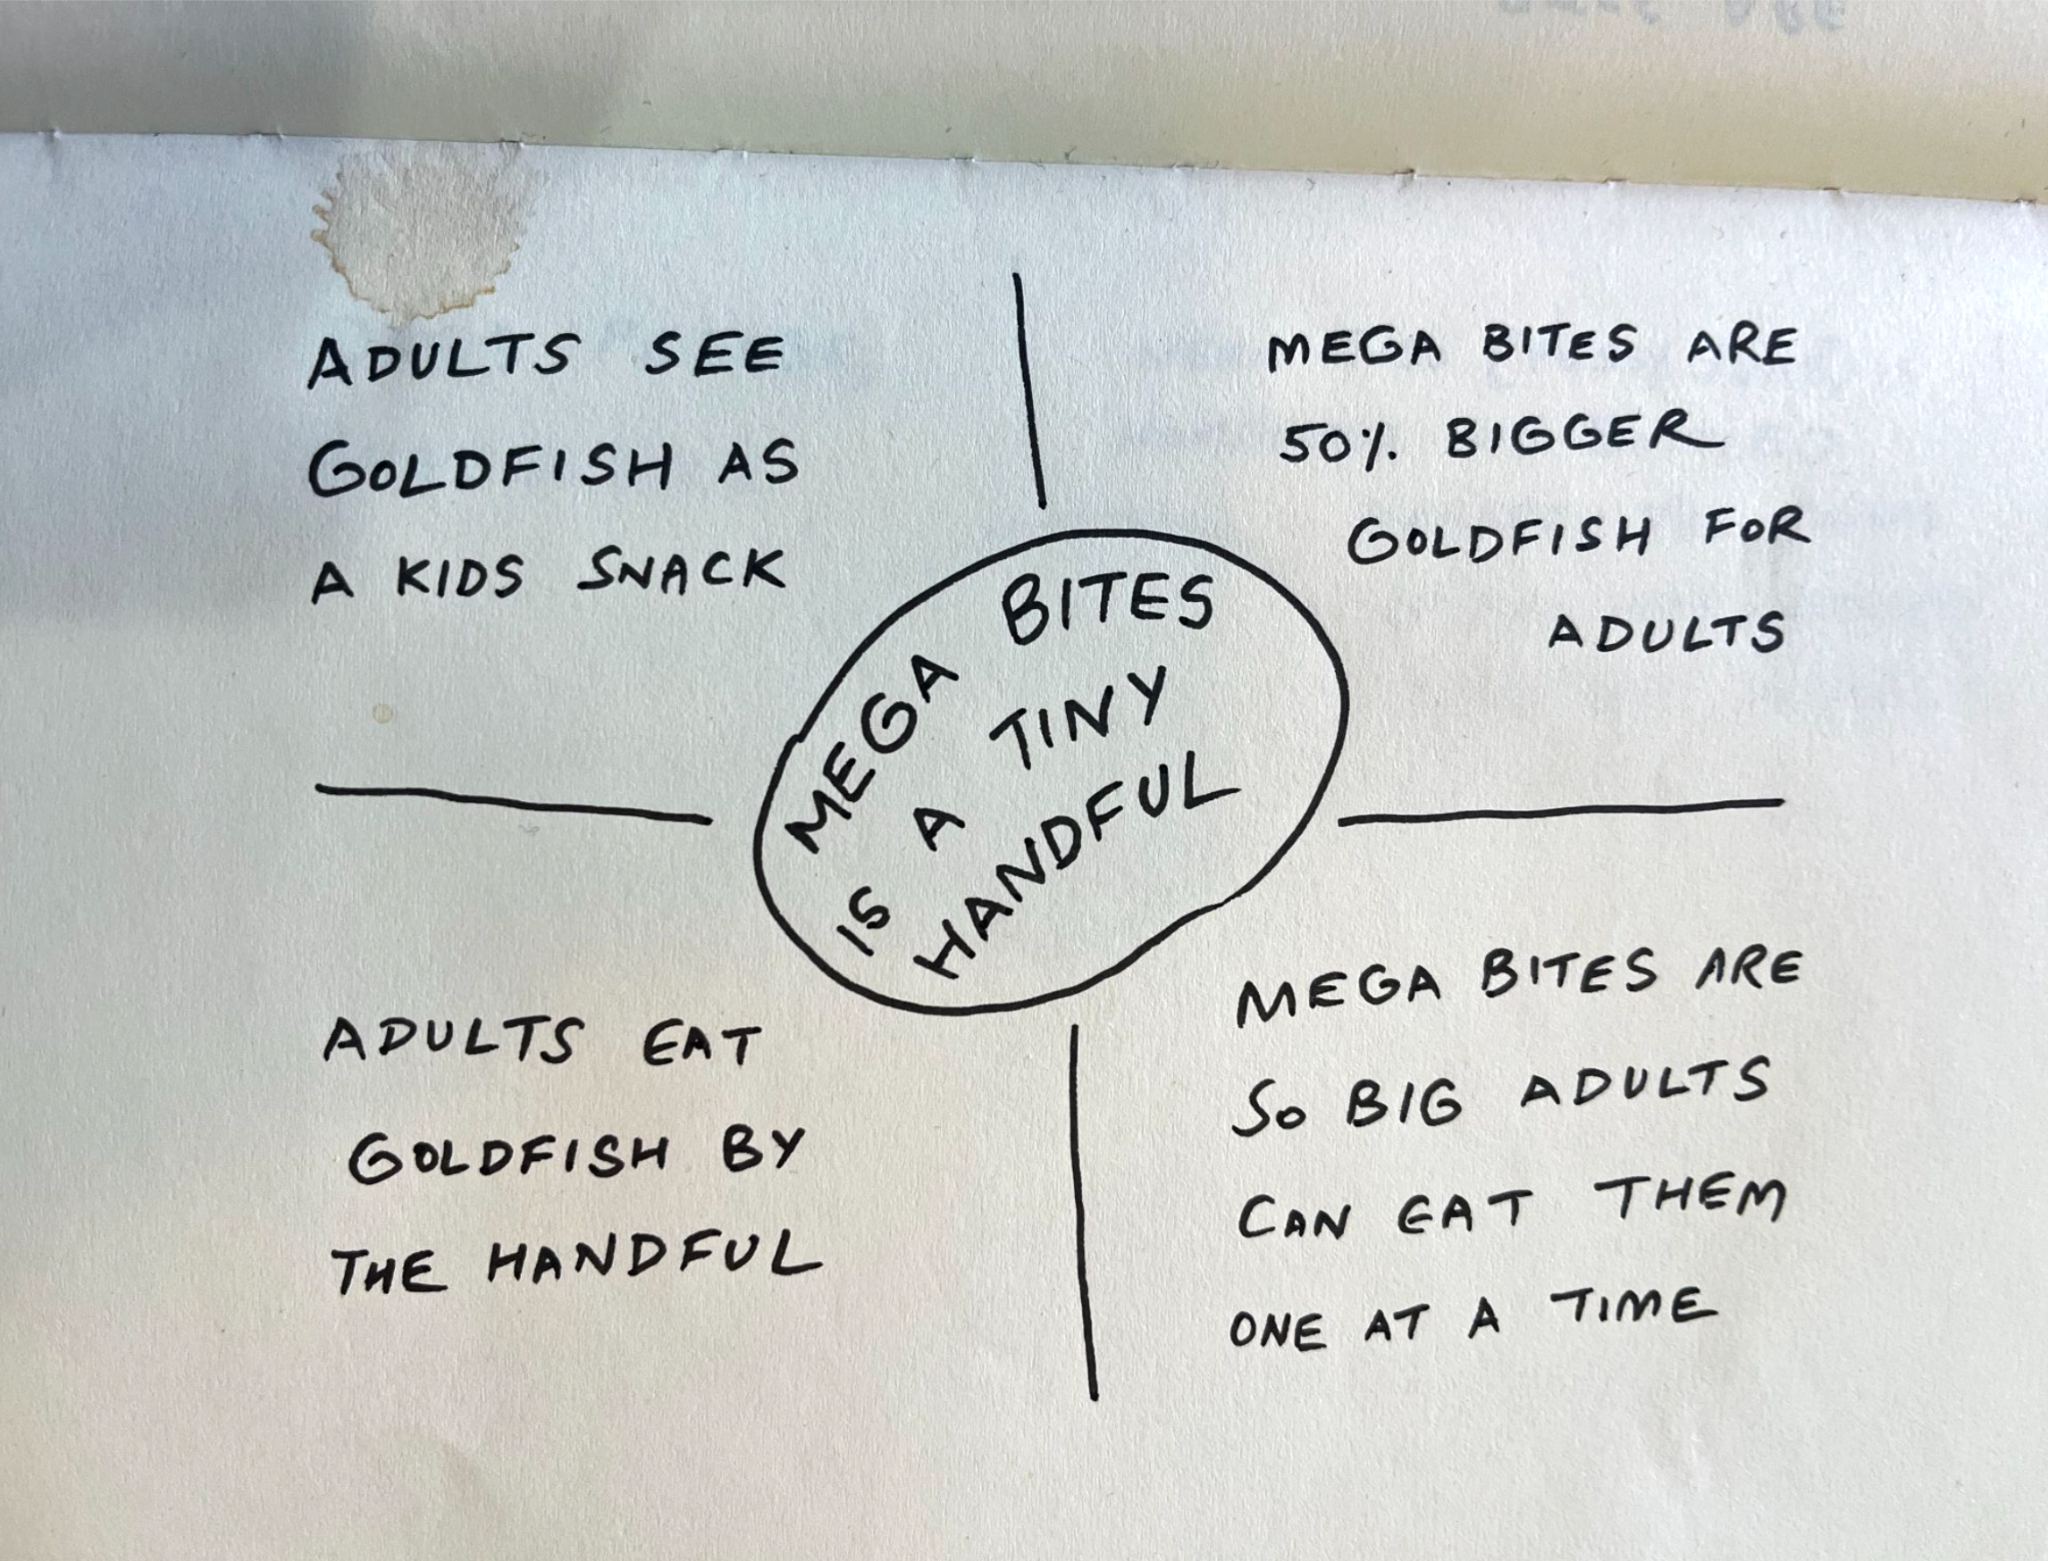 ADULTS SEE
GOLDFISH AS
A KIDS SNACK
MEGA BITES ARE
50% BIGGER
GOLDFISH FOR
ADULTS
MEGA BITES
IS A TINY
HANDFUL
ADULTS EAT
GOLDFISH BY
THE HANDFUL
MEGA BITES ARE
SO BIG ADULTS
CAN EAT THEM
ONE AT A TIME